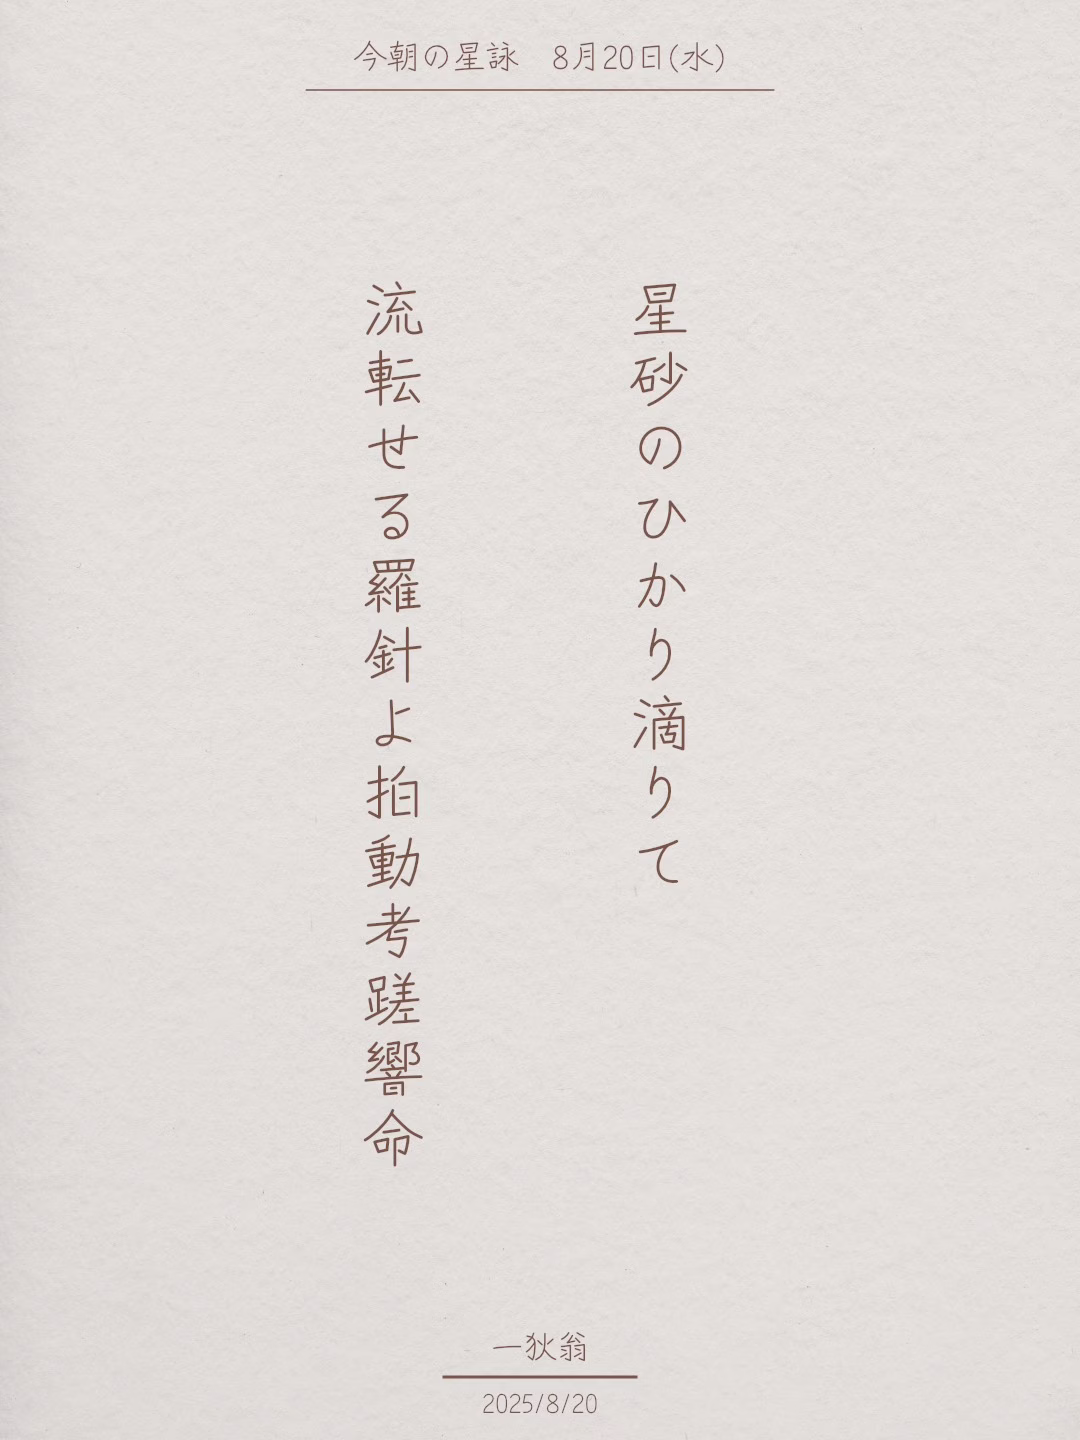 今朝の星詠　8月20日(水)
星砂のひかり滴りて
流転せる羅針よ拍動考蹉響命
一狄翁
2025/8/20